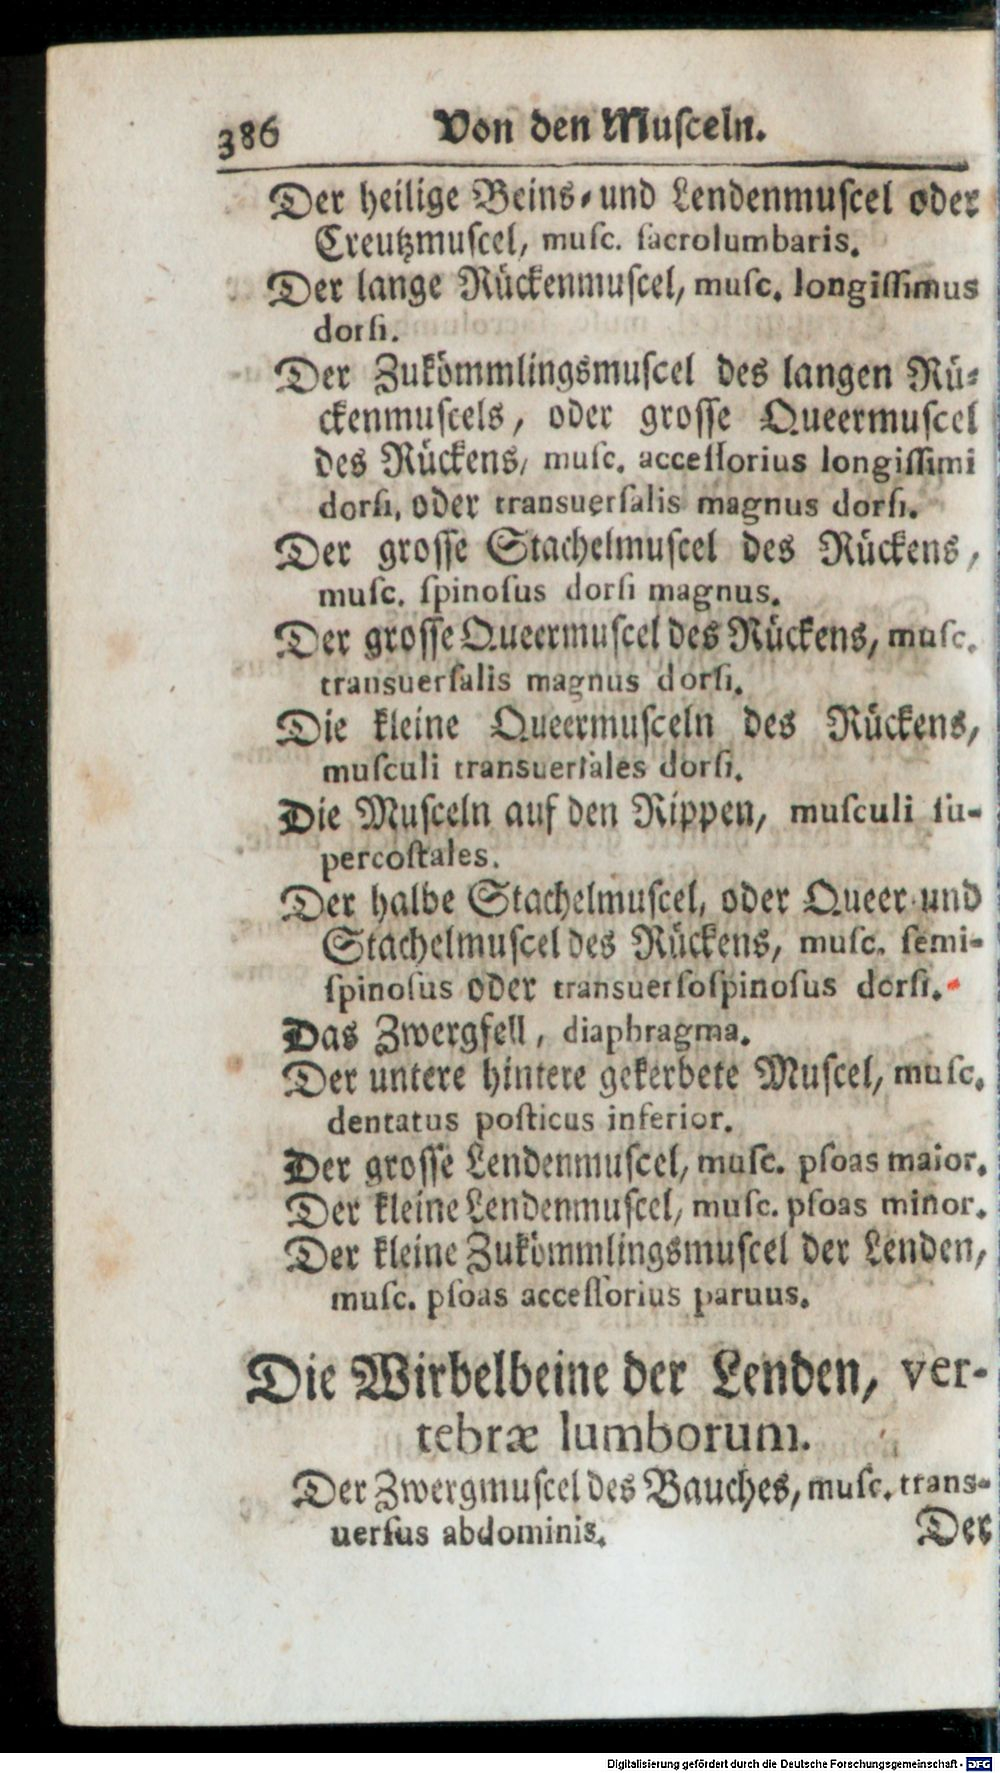 386 Von den Muſceln.
Der heilige Beins⸗und Lendenmuſcel oder
Creutzmuſcel, muſc. ſacrolumbaris.
Der lange Rückenmuſcel, muſc. longiſſimus
dorſi.
Der Zukömmlingsmuſcel des langen Rü⸗
ckenmuſcels, oder groſſe Queermuſcel
des Rückens, muſc. acceſſorius longiſſimi
dorſi, oder transuerſalis magnus dorſi.
Der groſſe Stachelmuſcel des Rückens,
muſc. ſpinoſus dorſi magnus.
Der groſſe Queermuſcel des Rückens, muſc.
transuerſalis magnus dorſi.
Die kleine Queermuſceln des Rückens,
muſculi transuerſales dorſi.
Die Muſceln auf den Rippen, muſculi ſu-
percoſtales.
Der halbe Stachelmuſcel, oder Queer⸗und
Stachelmuſcel des Rückens, muſc. ſemi-
ſpinoſus oder transuerſoſpinoſus dorſi.
Das Zwergfell, diaphragma.
Der untere hintere gekerbete Muſcel, muſc.
dentatus poſticus inferior.
Der groſſe Lendenmuſcel, muſc. pſoas maior.
Der kleine Lendenmuſcel, muſc. pſoas minor.
Der kleine Zukömmlingsmuſcel der Lenden,
muſc. pſoas acceſſorius paruus.
Die Wirbelbeine der Lenden, ver-
tebræ lumborum.
Der Zwergmuſcel des Bauches, muſc. trans-
uerſus abdominis.
Der
Digitalisierung gefördert durch die Deutsche Forschungsgemeinschaft - DFG